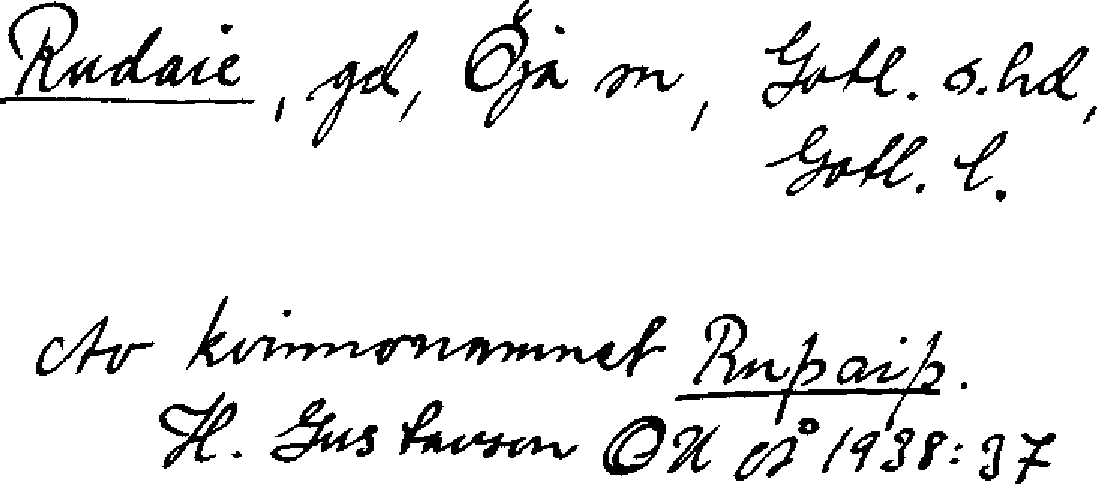 Rudaie, gd, Öja sn, Gotl. s. hd,
Gotl. l.
Av kvinnonamnet Ruþaiþ.
H. Gustavson OUÅ 1938:37